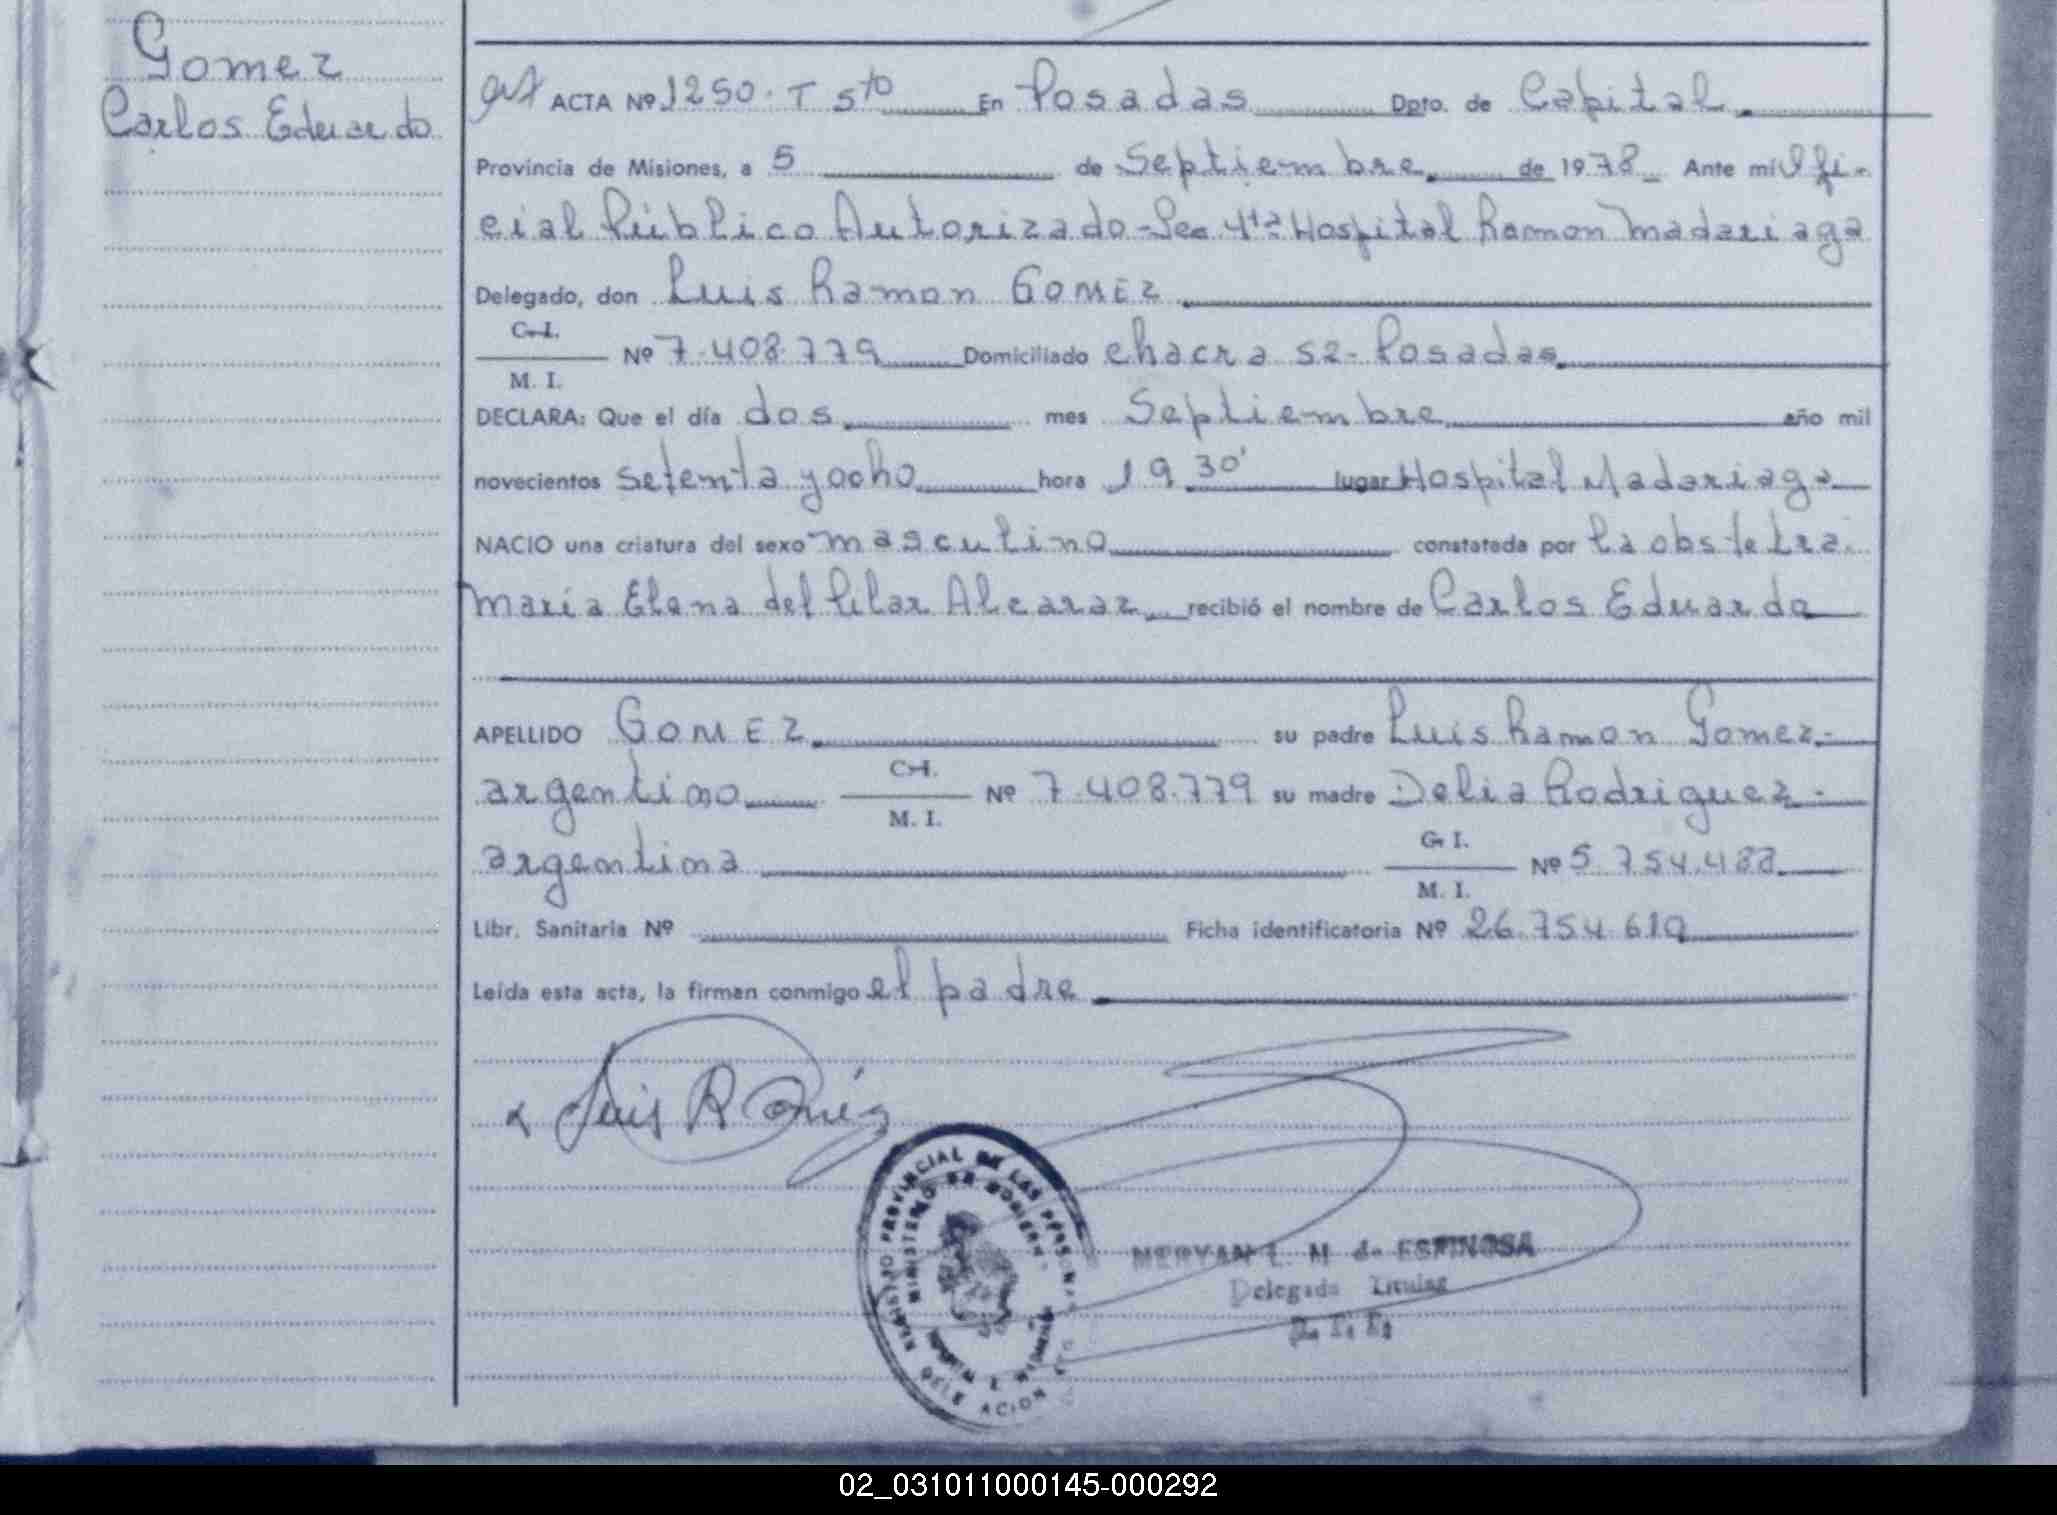 Gomez
Carlos Eduardo
ACTA Nº 1250. T 5to En Posadas Dpto. de Capital.
Provincia de Misiones, a 5 de Septiembre de 1978 Ante mi Ofi-
cial Público Autorizado-Sec 4ta Hospital Ramon Madariaga
Delegado, don Luis Ramon GOMEZ
C.I.
Nº 7.408.779 Domiciliado chacra 52- Posadas
M. I.
DECLARA: Que el día dos mes Septiembre año mil
novecientos setenta y ocho hora 19 30' lugar Hospital Madariaga
NACIO una criatura del sexo masculino constatada por la obstetra.
Maria Elena del Pilar Alcaraz recibió el nombre de Carlos Eduardo
APELLIDO GOMEZ su padre Luis Ramon Gomez-
argentino C.I. Nº 7.408.779 su madre Delia Rodriguez-
M. I.
argentina C. I. Nº 5.754.488
M. I.
Libr. Sanitaria Nº Ficha identificatoria Nº 26.754.619
Leída esta acta, la firman conmigo el padre
Luis R Goméz
REGISTRO PROVINCIAL DE LAS PERSONAS
MINISTERIO DE GOBIERNO
DELEGACION
MERYAN L. M de ESPINOSA
Delegada Titular
02_031011000145-000292